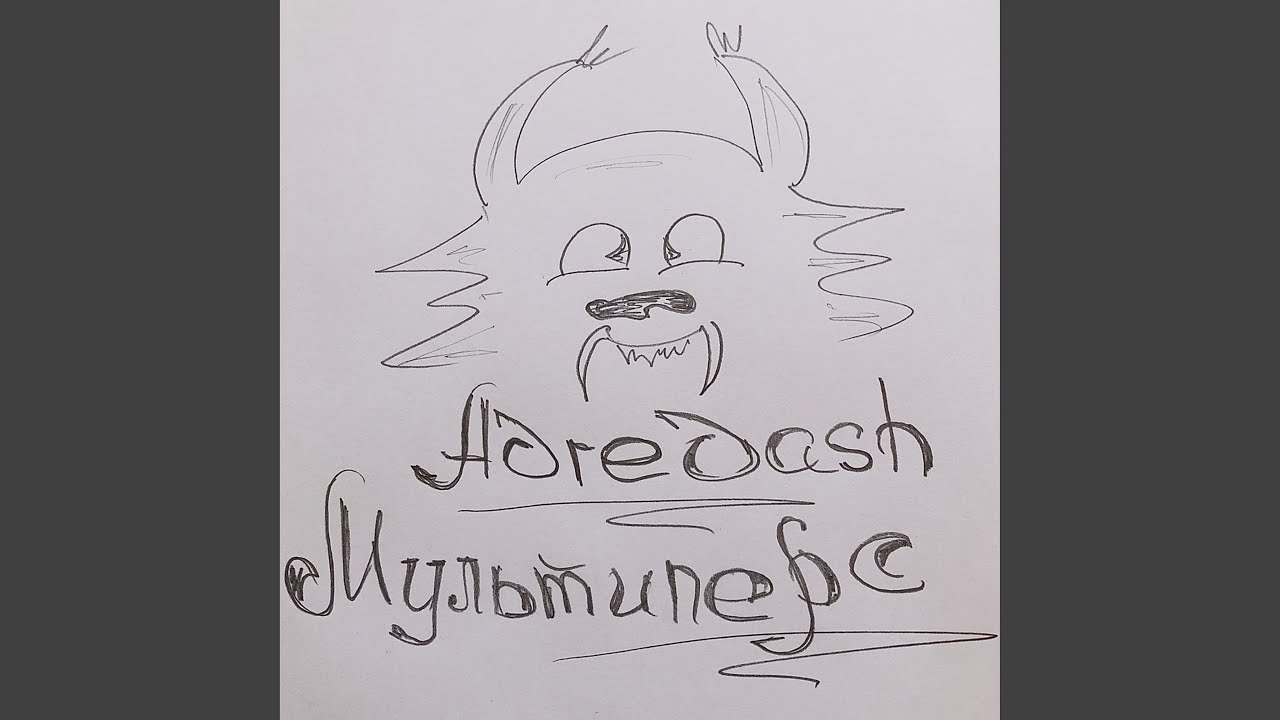 Adredash
Мультиперс